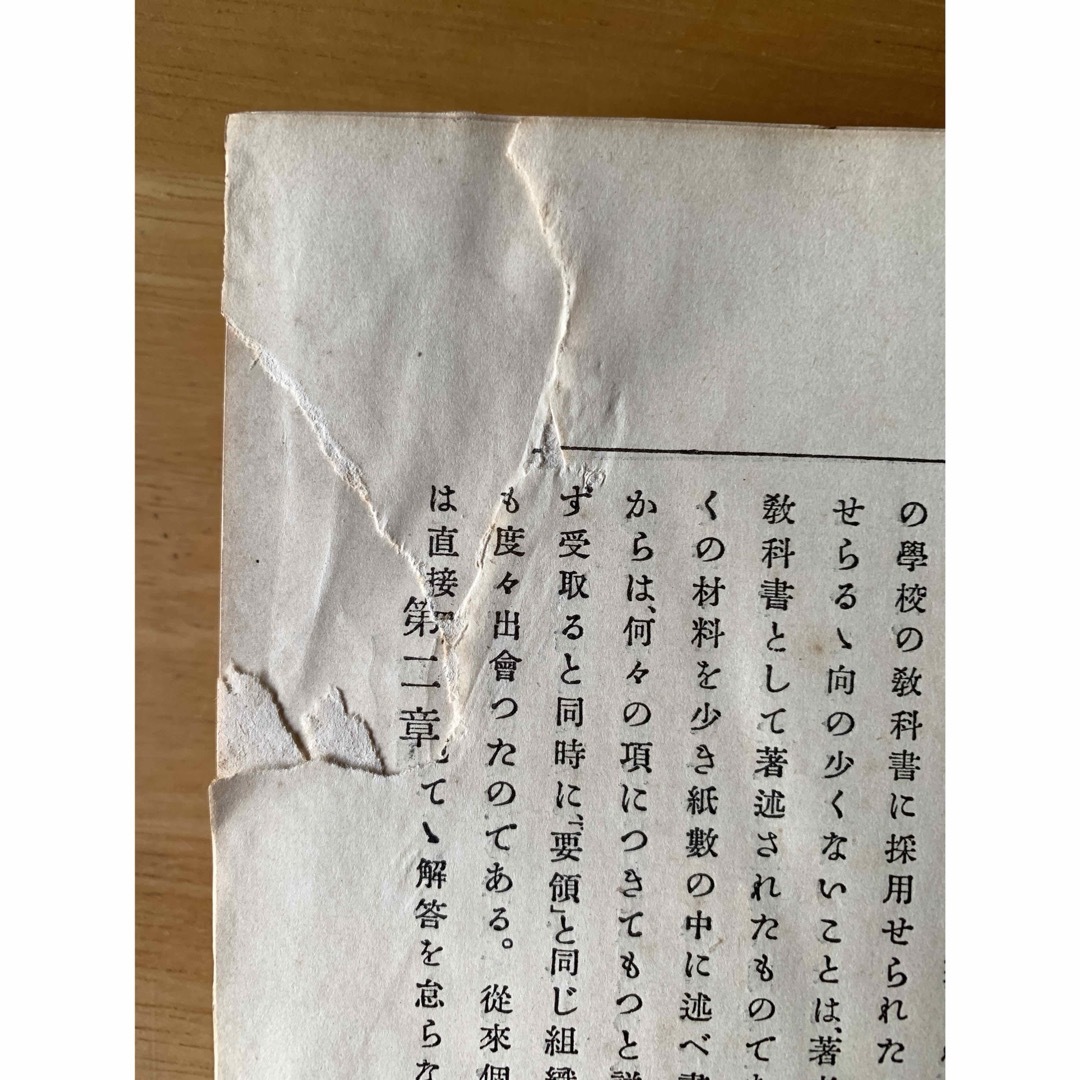 の學校の教科書に採用せられた
せらるゝ向の少くないことは、著
教科書として著述されたものて
くの材料を少き紙數の中に述べ
からは、何々の項につきてもつと
ず受取ると同時に、『要領』と同じ組
も度々出會つたのてある。從來個
は直接
て、解答を怠らな
第二章